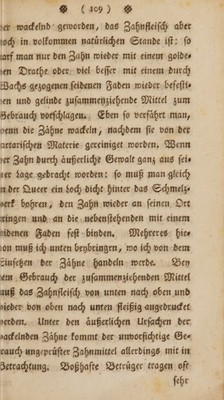 ( 109 )
er wackelnd geworden, das Zahnfleisch aber
noch in volkommen natürlichen Stande ist: so
arf man nur den Zahn wieder mit einem golde-
en Drathe oder viel besser mit einem durch
Wachs gezogenen seidenen Faden wieder befesti-
en und gelinde zusammenziehende Mittel zum
Gebrauch vorschlagen. Eben so verfährt man,
wenn die Zähne wackeln, nachdem sie von der
artarischen Materie gereiniget worden. Wenn
er Zahn durch äußerliche Gewalt ganz aus sei-
er Lage gebracht worden: so muß man gleich
n der Queer ein Loch dicht hinter das Schmelz-
werk bohren, den Zahn wieder an seinen Ort
ringen und an die nebenstehenden mit einem
eidenen Faden fest binden. Mehreres hie-
on muß ich unten beybringen, wo ich von dem
Einsetzen der Zähne handeln werde. Bey
em Gebrauch der zusammenziehenden Mittel
muß das Zahnfleisch von unten nach oben und
wieder von oben nach unten fleißig angedrucket
werden. Unter den äußerlichen Ursachen der
wackelnden Zähne kommt der unvorsichtige Ge-
rauch ungeprüfter Zahnmittel allerdings mit in
Betrachtung. Boßhafte Betrüger tragen oft
sehr